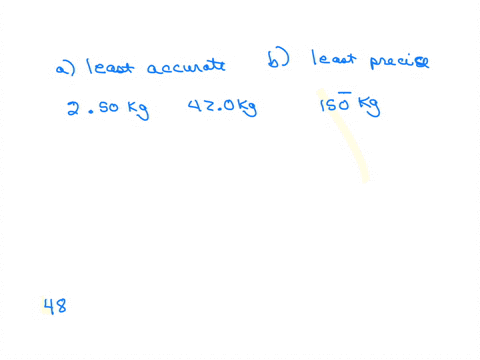 a) least accurate b) least precise
2.50 Kg 42.0 kg 150̅ Kg
48